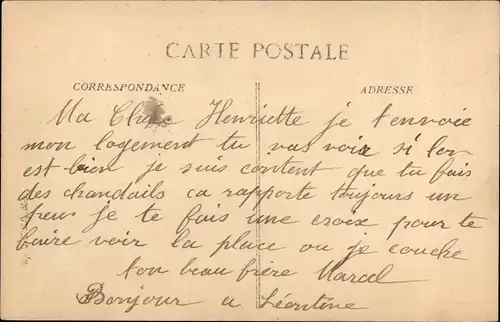 CARTE POSTALE
CORRESPONDANCE ADRESSE
Ma Chère Henriette je t'envoie
mon logement tu vas voir si lon
est bien je suis content que tu fais
des chandails ca rapporte toujours un
peu je te fais une croix pour te
faire voir la place ou je couche
ton beau frère Marcel
Bonjour a Léontine